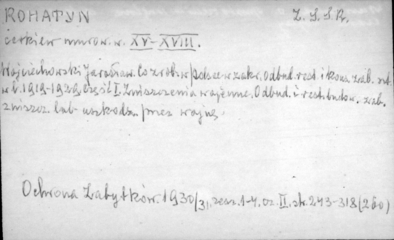 ROHATYN Z.S.S.R.
cerkiew murow. w. XV-XVIII.
Wojciechowski Jarosław. Co zrob. w Polsce w zakr. Odbud. rest. i kons. zab. szt.
w l. 1919-1929. Część I. Zniszczenia wojenne. Odbud. i rest. budow. zab.
zniszcz. lub uszkodz. przez wojnę.
Ochrona Zabytków. 1930/31, zesz. 1-4. cz. II. str. 243-318 (260)